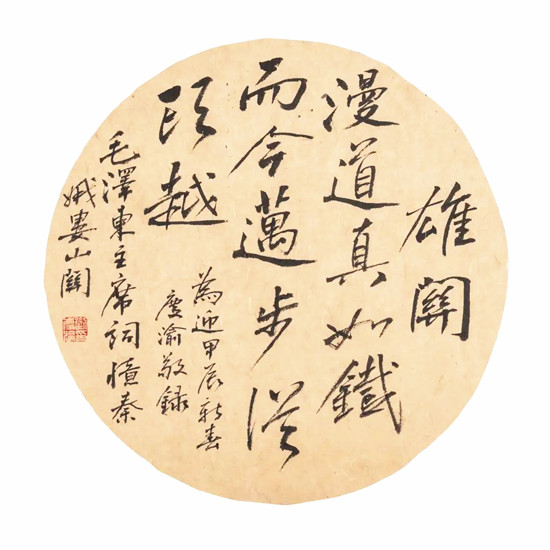 雄關
漫道真如鐵
而今邁步從
頭越
為迎甲辰新春
渝敬録
毛澤東主席詞憶秦
娥婁山關